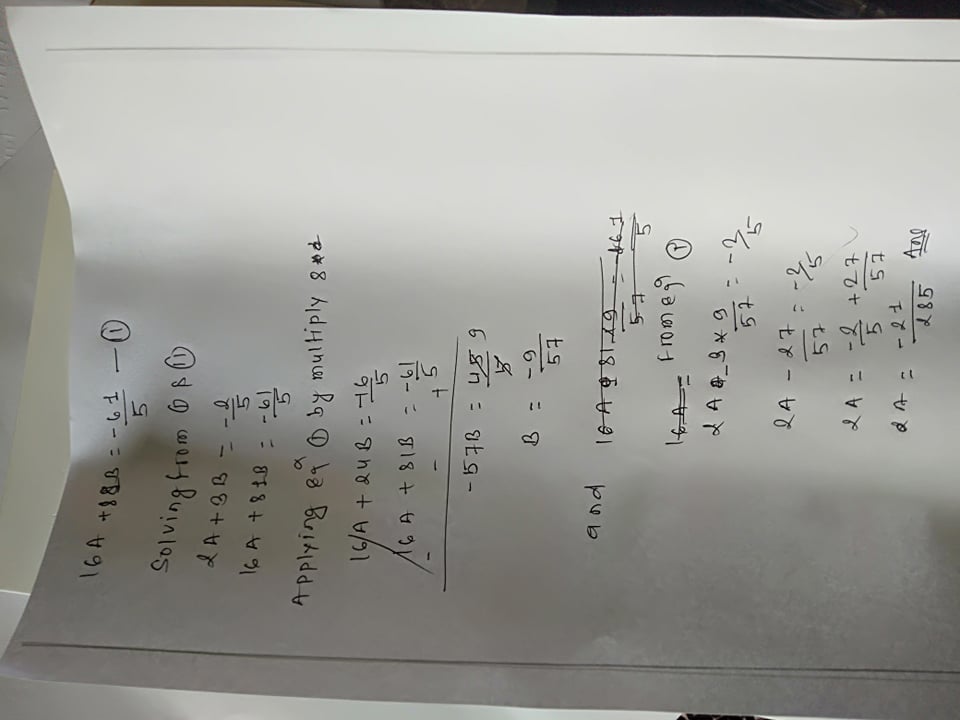 16A + 81B = -61/5 — (ii)
Solving from (i) & (ii)
2A + 3B = -2/5
16A + 81B = -61/5
Applying eqn (i) by multiply 8
16A + 24B = -16/5
16A + 81B = -61/5
- - +
-57B = 45/5 9
B = -9/57
and
16A =
from eq (i)
2A - 3*9/57 = -2/5
2A - 27/57 = -2/5
2A = -2/5 + 27/57
2A = -21/285 Ans